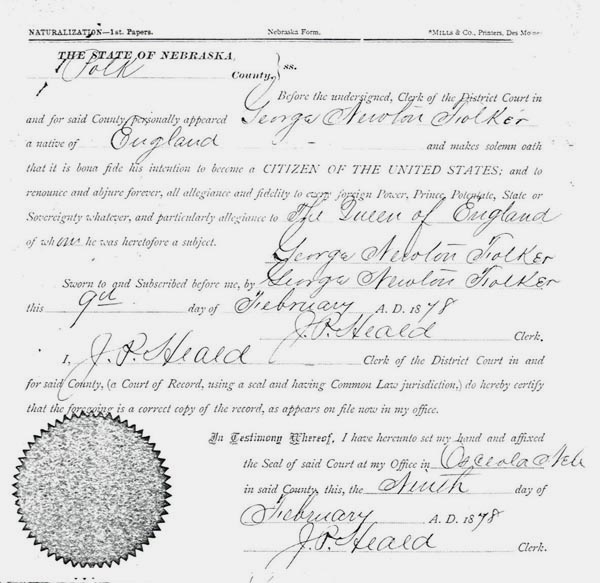 NATURALIZATION—1st. Papers. Nebraska Form. *MILLS & CO., Printers, Des Moine
THE STATE OF NEBRASKA, } ss.
Polk County,
Before the undersigned, Clerk of the District Court in
and for said County personally appeared George Newton Folker
a native of England and makes solemn oath
that it is bona fide his intention to become a CITIZEN OF THE UNITED STATES; and to
renounce and abjure forever, all allegiance and fidelity to every foreign Power, Prince, Potentate, State or
Sovereignty whatever, and particularly allegiance to The Queen of England
of whom he was heretofore a subject.
George Newton Folker
Sworn to and Subscribed before me, by George Newton Folker
this 9th day of February A. D. 1878
J. P. Heald Clerk.
I, J. P. Heald Clerk of the District Court in and
for said County, (a Court of Record, using a seal and having Common Law jurisdiction,) do hereby certify
that the foregoing is a correct copy of the record, as appears on file now in my office.
In Testimony Whereof, I have hereunto set my hand and affixed
the Seal of said Court at my Office in Osceola Neb
in said County, this, the Ninth day of
February A. D. 1878
J. P. Heald Clerk.